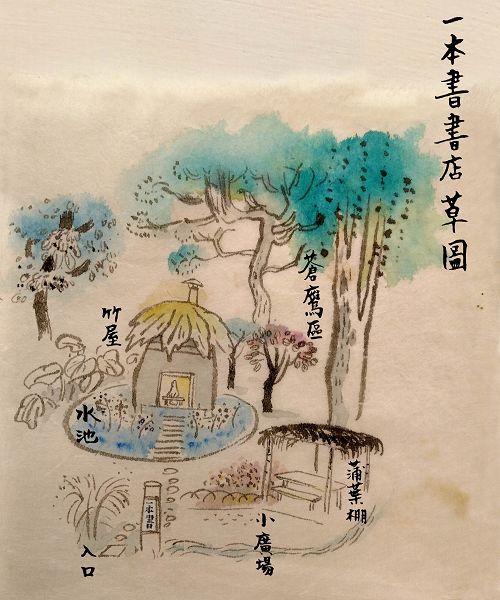 一本書書店草圖
蒼鷹區
竹屋
水池
蒲葉棚
一本書
小廣場
入口